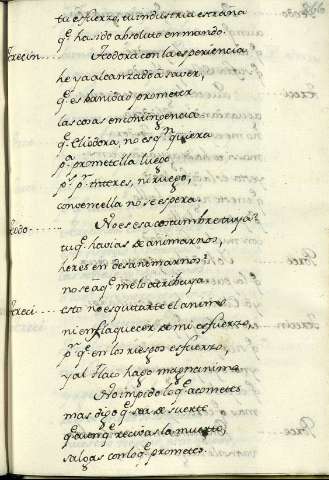 tu esfuerzo, tu industria estraña
q̃ ha sido absoluto en mando.
Treçiun...... Teodora con la esperiençia
he ya alcanzado à saver,
q̃ es banidad prometer
las cosas en contingençia
q̃ Eliodora, no es qn quiera
pa prometella luego
ps pr interes, ni ruego,
convencella no se espera.
No es esa costumbre tuya?
tu q̃ havias de animarnos,
heres en desanimarnos?
no se à q̃ me lo atribuya.
Treçi...... esto no es quitarte el animo
ni enflaquecer de mi esfuerzo,
pr q̃ en los riesgos esfuerzo,
y al flaco hago magnanimo.
No impido lo q̃ acometes
mas digo q̃ sea de suerte
q̃ aunq̃ reçivas la muerte,
salgas con lo q̃ prometes.